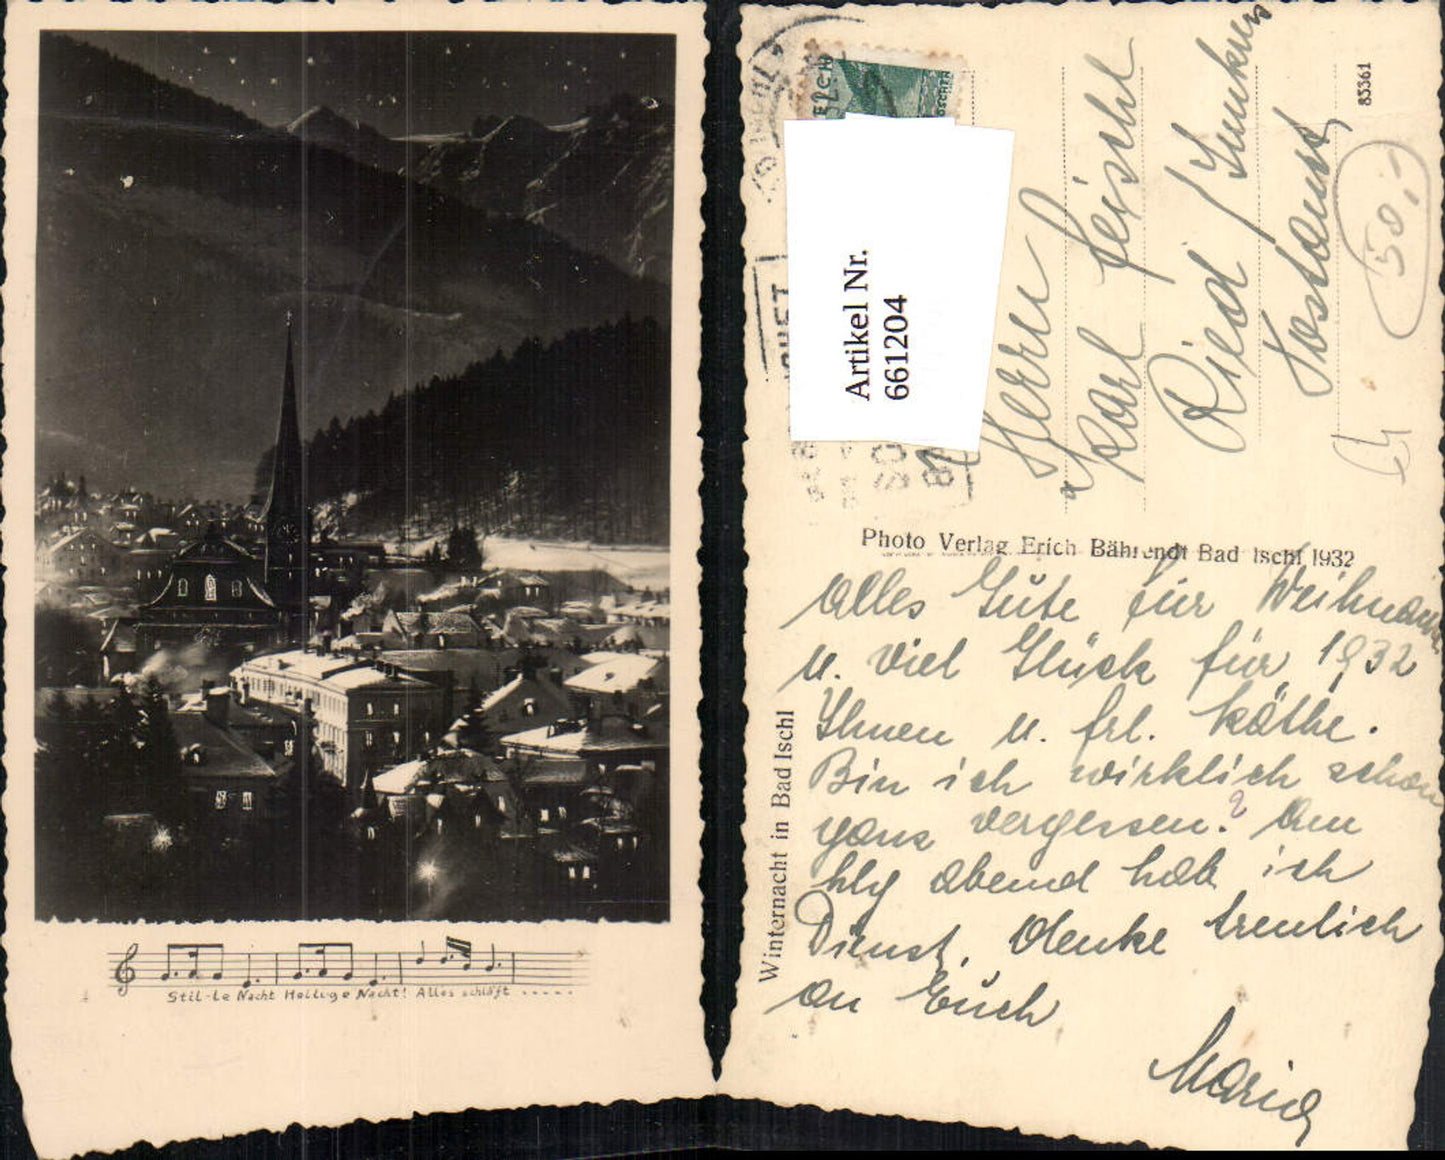 Stil-le Nacht Heilige Nacht! Alles schläft .....
Artikel Nr.
661204
85361
50.-
Herrn
Karl Feischl
Ried / Innkreis
Postamt
Photo Verlag Erich Bährendt Bad Ischl 1932
Winternacht in Bad Ischl
Alles Gute für Weihnachten
u. viel Glück für 1932
Ihnen u. Frl. Käthe.
Bin ich wirklich schon
ganz vergessen? Am
hlg abend hab ich
Dienst, denke treulich
an Euch
Maria